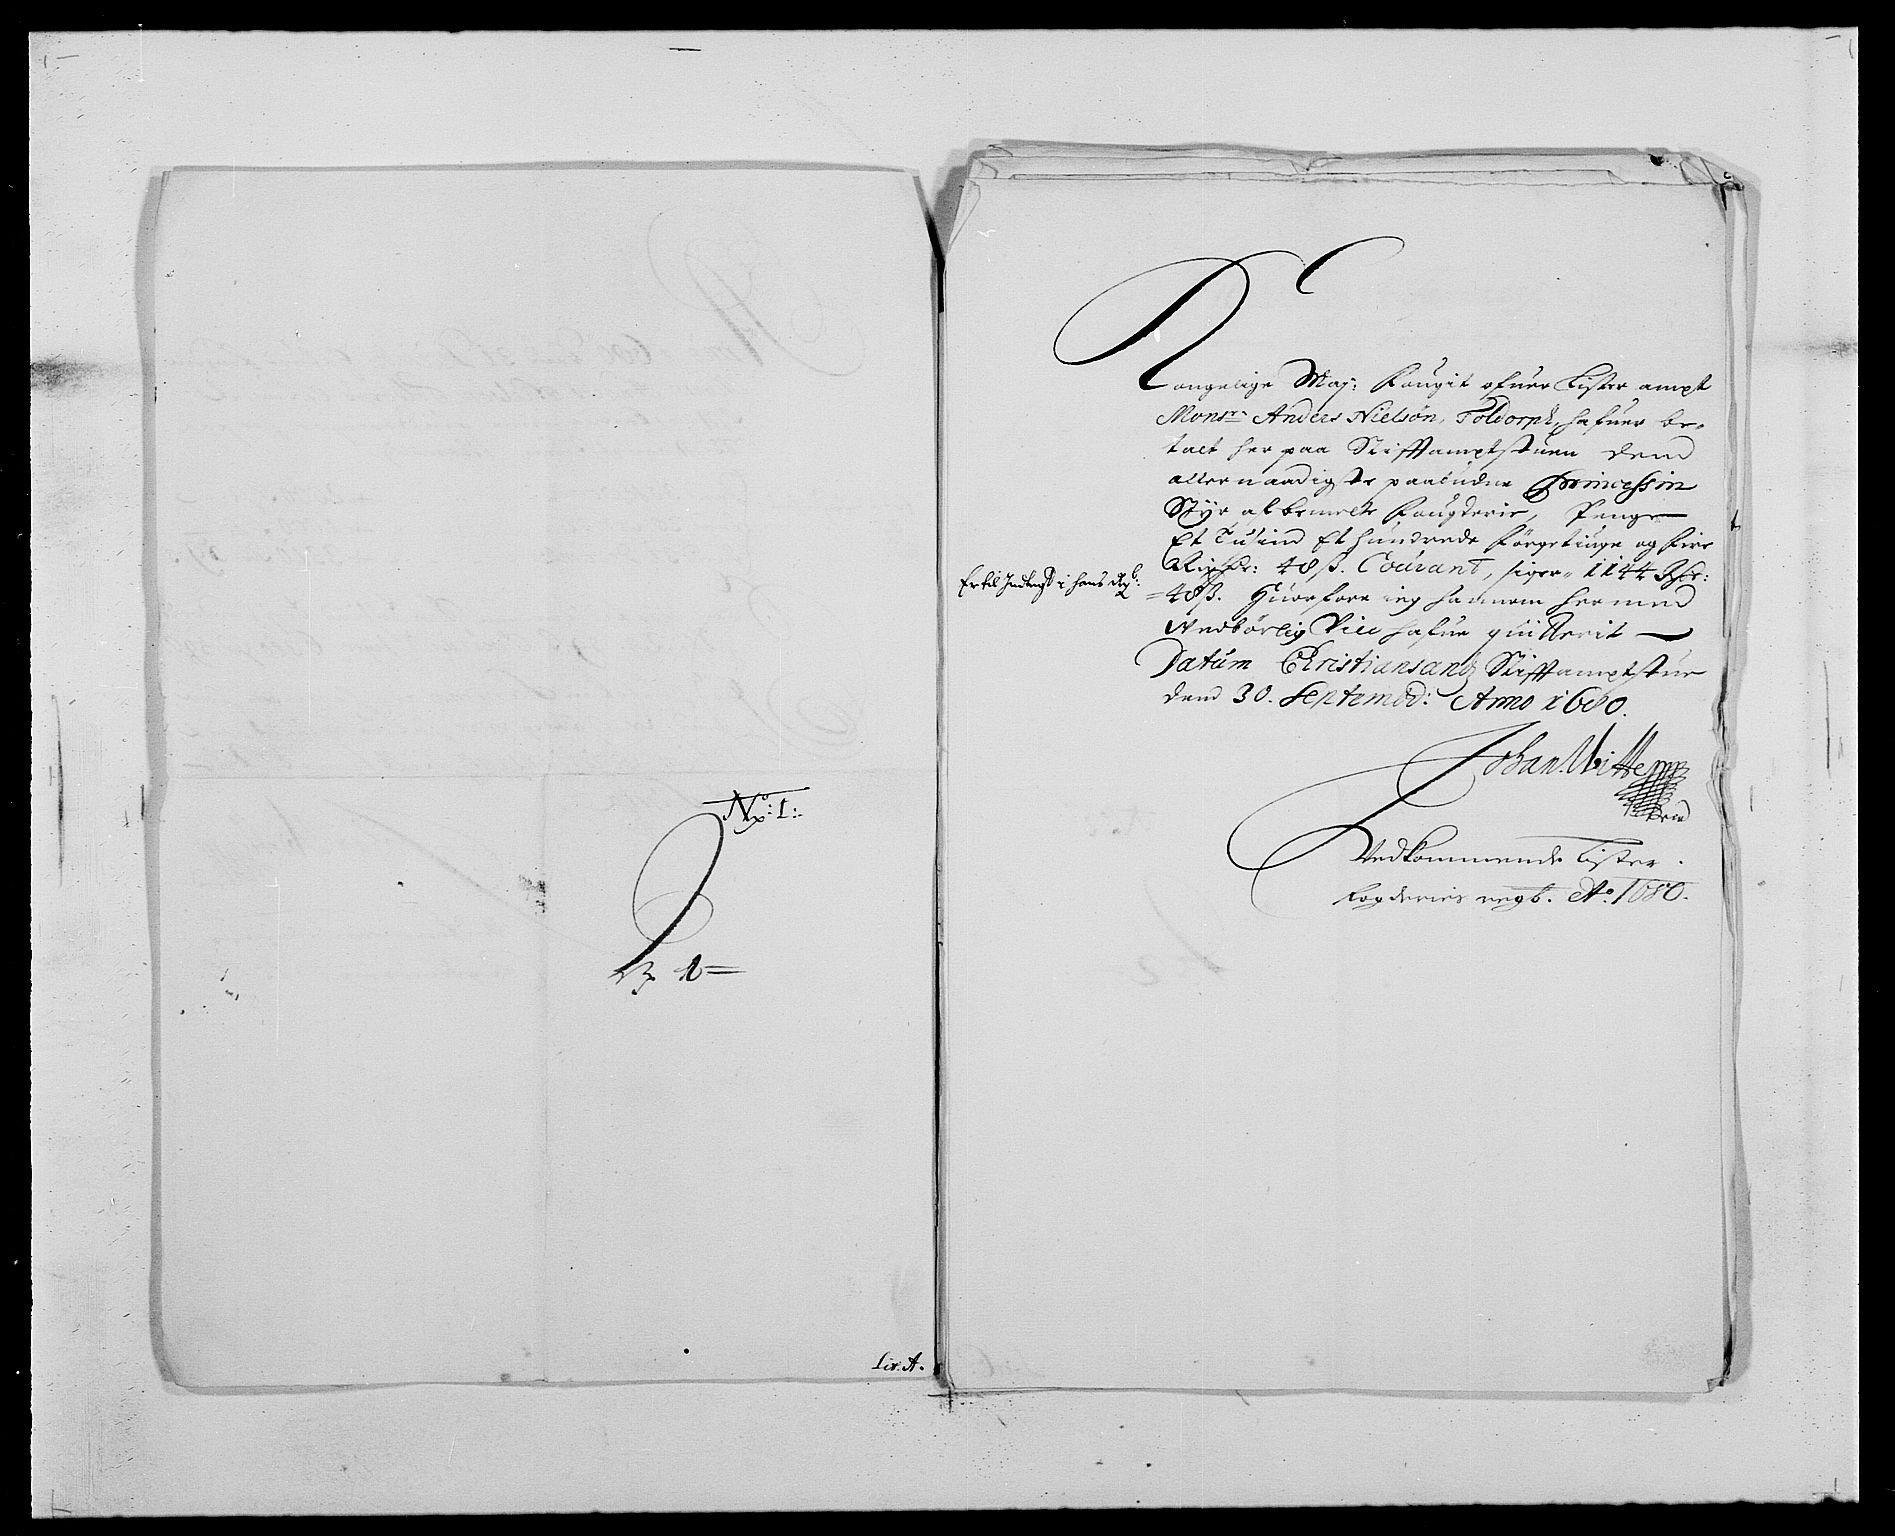 No: 1:
Lit. A.
Kongelige Maj: Fougit ofuer Lister ampt
Monsr: Anders Nielsøn, Toldorph, hafuer be-
talt her paa Stifftamptstuen dend
allernaadigste paabudne Princessin
Styr af bemelte Fougderie, Penge
Et Tusind Et hundrede Førgetiuge og fire
Rixdr: 48 ß. Courant, siger 1144 Rdr:
48 ß. Huorfore ieg hannem hermed
Wedbørlig Viis hafue quitterit
Datum Christiansands Stifftamptstue
dend 30. Septembr: Anno 1680.
Er til Indtegt i hans Regb:
Johan
Vedkommende Lister
fogderies regb. Ao. 1680.